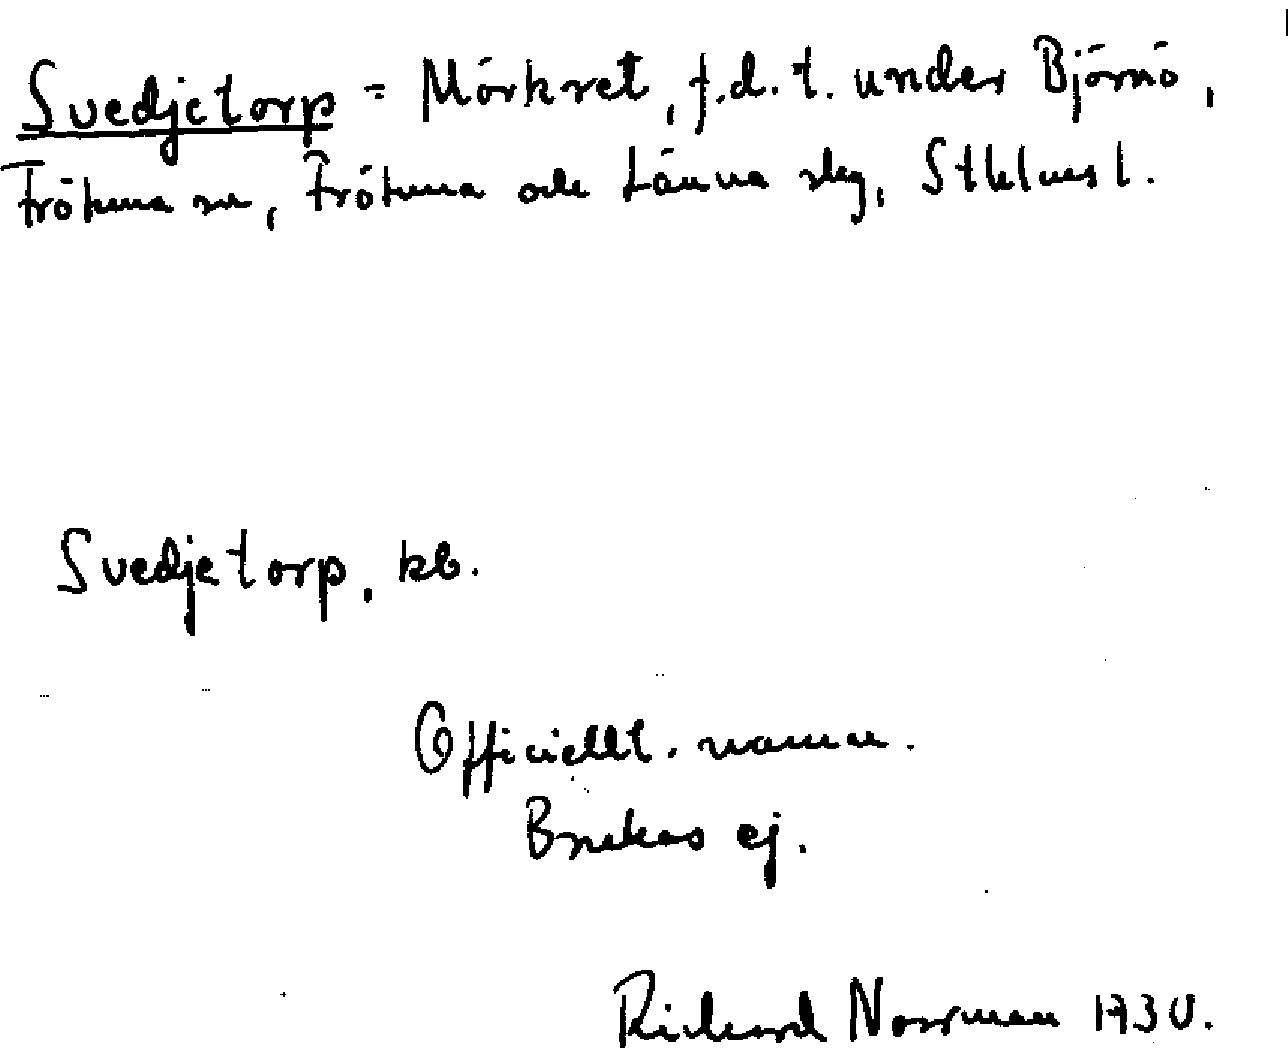 Svedjetorp = Mörkret, f.d. t. under Björnö,
Frötuna sn, Frötuna och Länna skg, Sthlms l.
Svedjetorp, kb.
Officiellt. namn.
Brukas ej.
Rickard Norrman 1930.